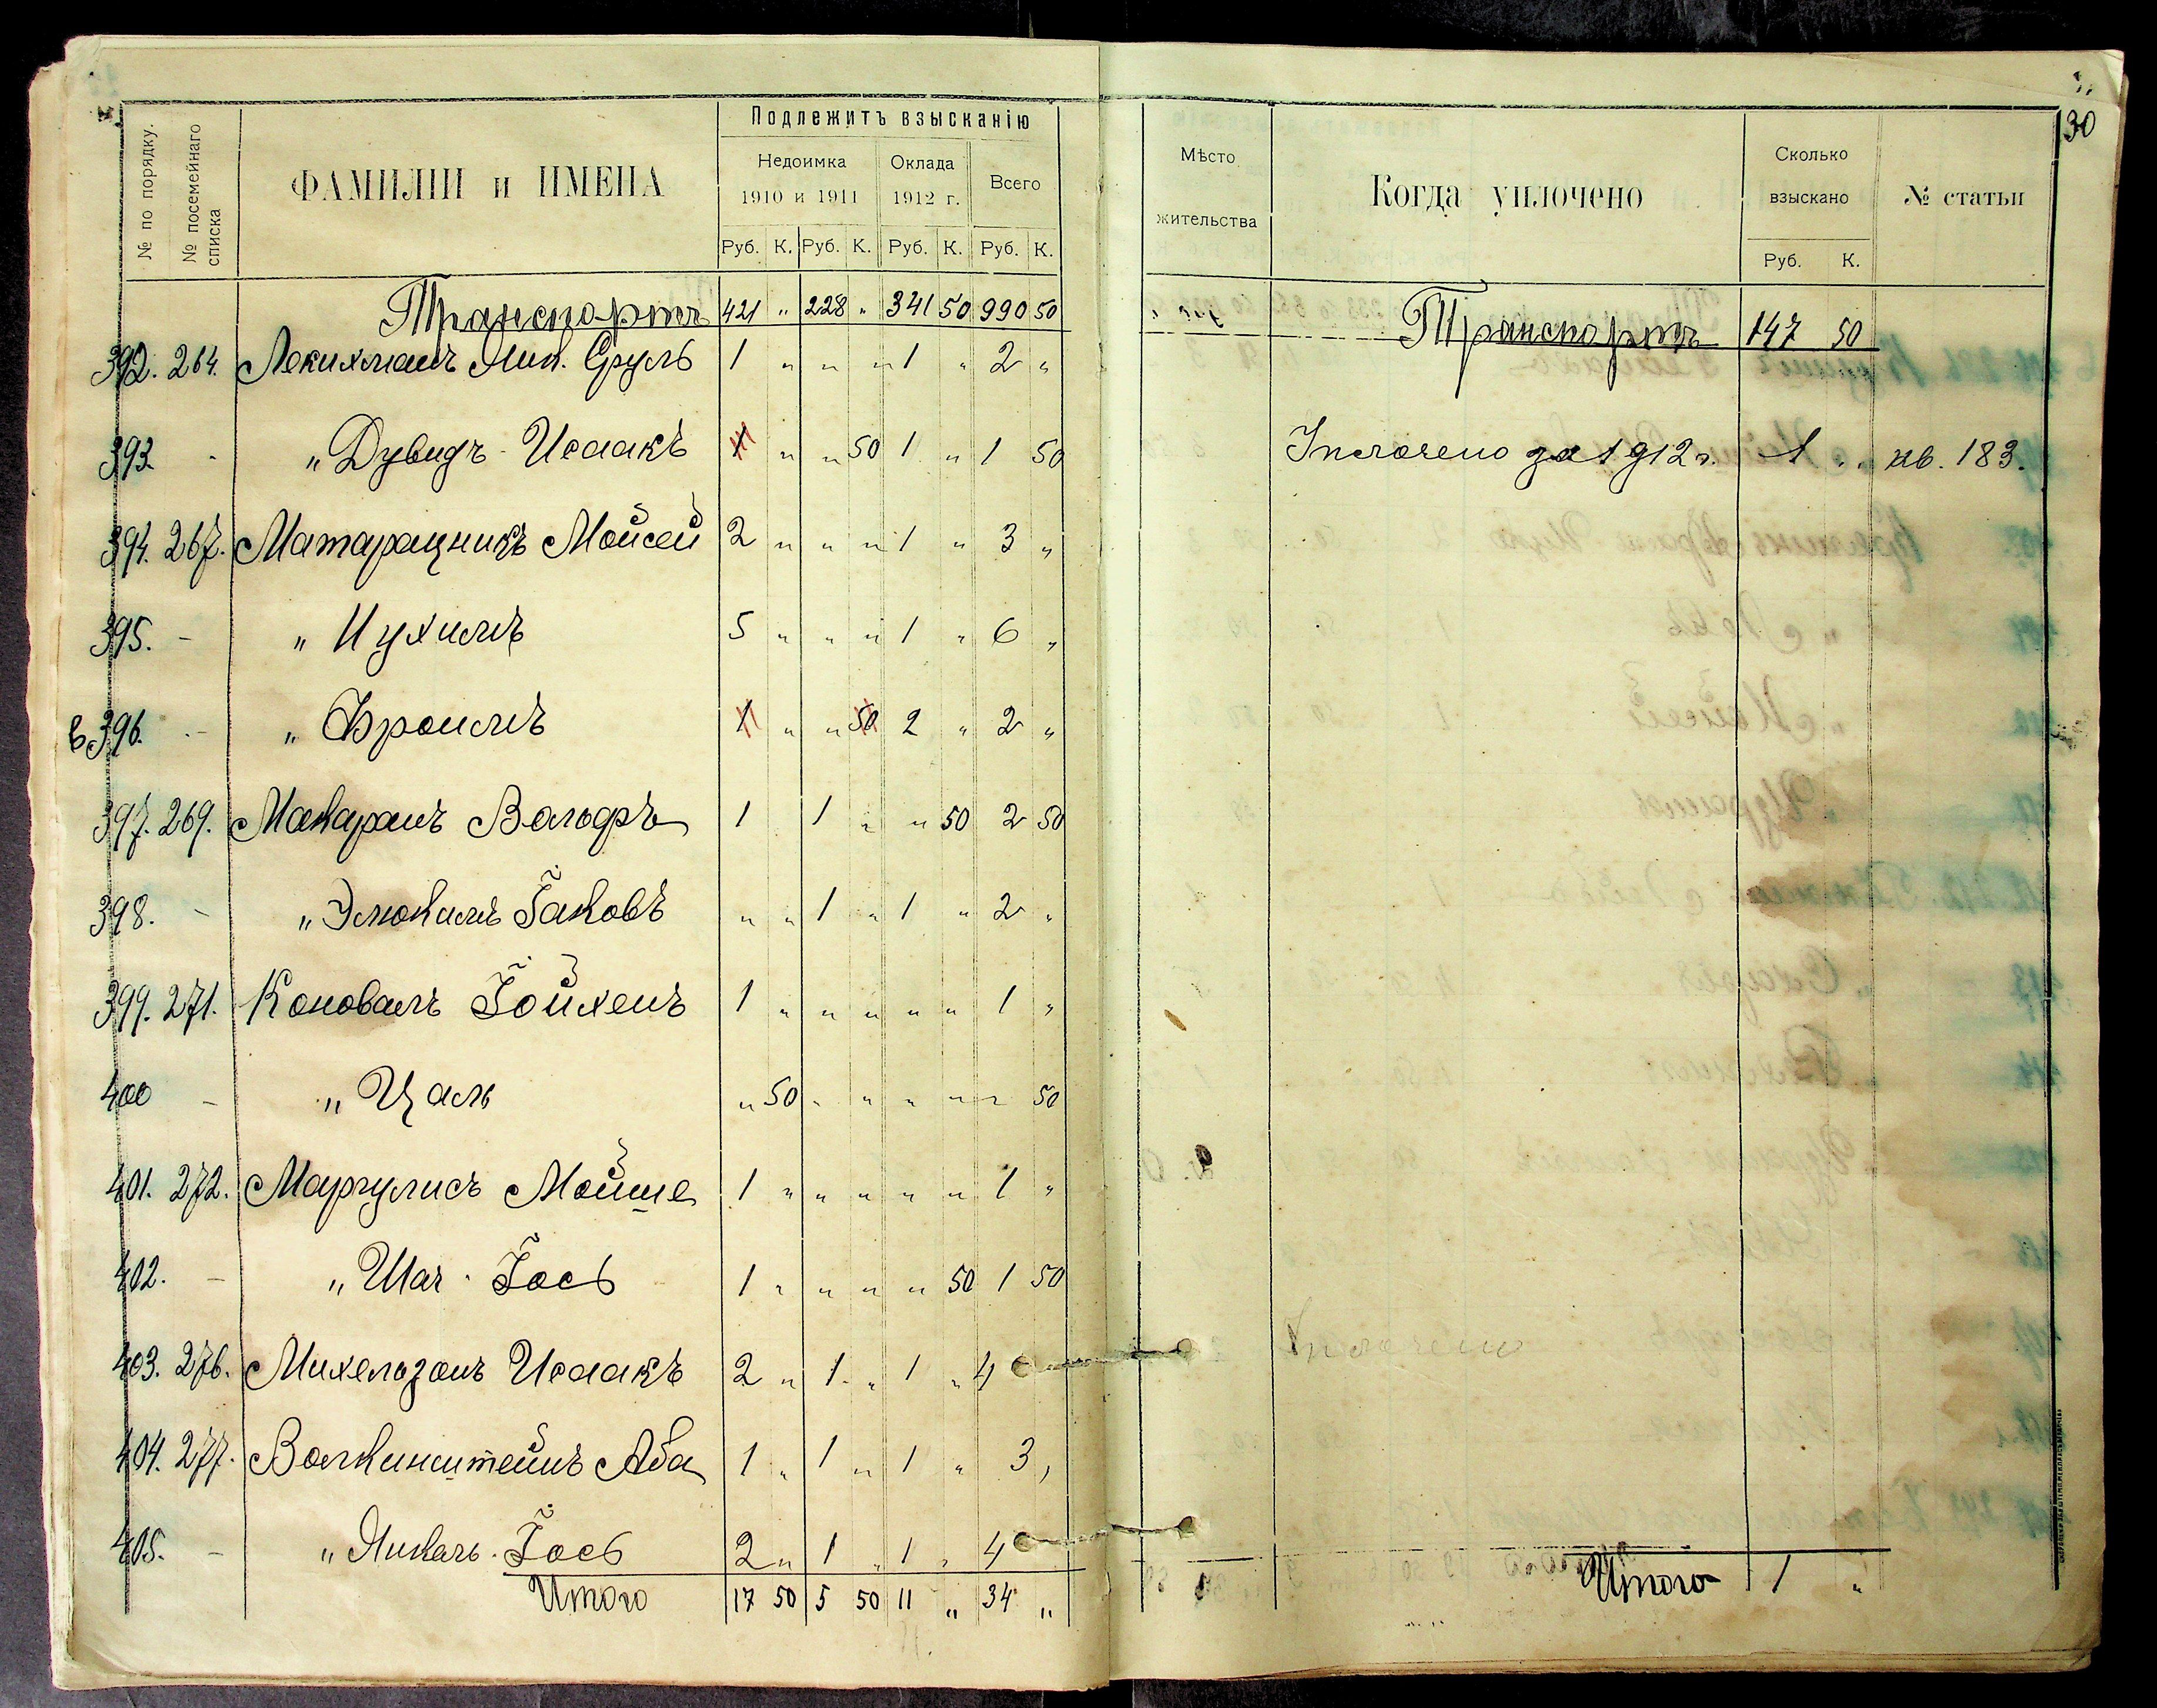 30
Подлежитъ взысканію
№ по порядку.
№ посемейнаго списка
ФАМИЛІИ и ИМЕНА
Недоимка
1910 и 1911
Оклада
1912 г.
Всего
Руб. К. Руб. К. Руб. К. Руб. К.
Транспортъ 421 " 228 " 341 50 990 50
392. 264. Лекихманъ Мин. Сруль 1 " " " 1 " 2 "
393. - " Дувидъ-Исаакъ 1 " " 50 1 " 1 50
394. 267. Матарацникъ Мойсей 2 " " " 1 " 3 "
395. - " Нухимъ 5 " " " 1 " 6 "
в 396. - " Фроимъ 1 " " 50 2 " 2 "
397. 269. Макаранъ Вольфъ 1 1 " " 50 2 50
398. - " Элюкимъ Іаковъ " " 1 " 1 " 2 "
399. 271. Коновалъ Іойхенъ 1 " " " " " 1 "
400 - " Цаль " 50 " " " " " 50
401. 272. Маргулисъ Мойше 1 " " " " " 1 "
402. - " Шая-Іось 1 " " " " 50 1 50
403. 276. Михельзонъ Исаакъ 2 " 1 " 1 " 4
404. 277. Волкинштейнъ Аба 1 " 1 " 1 " 3 "
405. - " Янкель-Іось 2 " 1 " 1 " 4
Итого 17 50 5 50 11 " 34 "
Мѣсто
жительства
Когда уплочено
Сколько
взыскано
Руб. К.
№ статьи
Транспортъ 147 50
Уплочено за 1912 г. 1 " кв. 183.
Уплочено
Итого 1 "